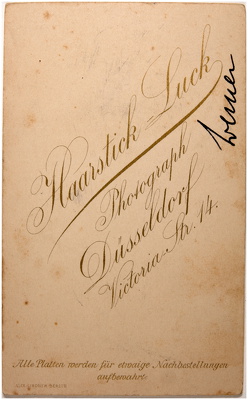 Haarstick Luck
Photograph
Düsseldorf
Victoria-Str. 14.
Werner
Alle Platten werden für etwaige Nachbestellungen
aufbewahrt.